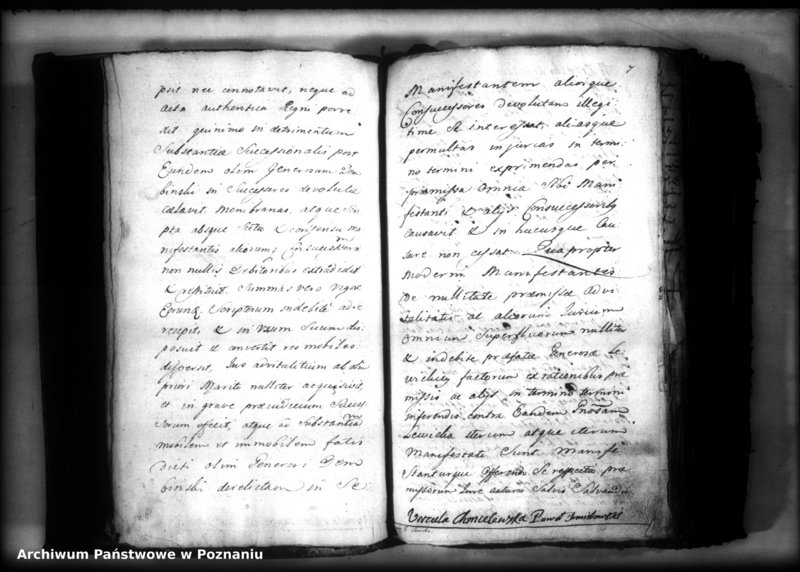 psit nec connotavit, neque ad
acta authentica Regni porre
xit quinimo in detrimentum
Substantiæ Successionalis post
Eundem olim Generosum Dem
binski in Successores devolutæ
celavit membranas, atque Scri
pta absque Scitu et consensu Ma
nifestantis aliorum
non nullis Debitoribus extradedit
et restituit. Summas vero vigore
Scriptorum indebite ad se
recepit, et in usum Suum dis
posuit et convertit res mobiles
dispersit, Jus advitalitium ab olim
priori Marito nulliter acquisivit,
et in grave præjudicium Succes
sorum effecit, atque ad Substantiam
mobilem et immobilem fatis
dicti olim Generosi Dem
binski derelictam in Se
7
Manifestantem aliosque
Consuccessores devolutam illegi
time Se interessat, aliasque
permultas injurias in termi
no termini exprimendas per
præmissa omnia Sibi Mani
festanti et alijs Consuccessoribus
causavit et in hucusque Cau
sare non cessat. Quapropter
moderni Manifestantes
de nullitate præmissæ advi
talitatis ac aliorum Jurium
omnium Superfluorum nulliter
et indebite præfatæ Generosæ Le
factorum ex rationibus præ
missis ac alijs in termino termini
inferendis contra Eandem
iterum atque iterum
Manifestati Sunt Manife
stanturque offerendo Se respectu præ
missorum Jure acturos Salvis Salvandis
Urszula Chmielewska Paweł
Archiwum Państwowe w Poznaniu